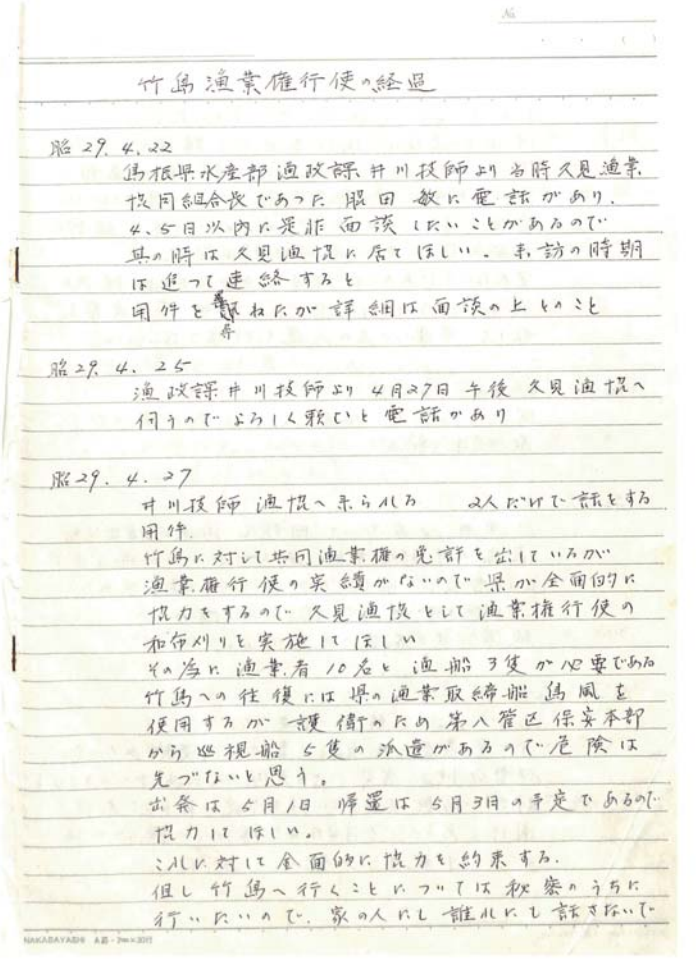 No.
竹島漁業権行使の経過
昭29.4.22
島根県水産部漁政課井川技師より当時久見漁業
協同組合長であった脇田敏に電話があり、
4.5日以内に是非面談したいことがあるので
其の時は久見漁協に居てほしい。来訪の時期
は追って連絡すると
用件を尋ねたが詳細は面談の上とのこと
昭29.4.25
漁政課井川技師より4月27日午後久見漁協へ
伺うのでよろしく頼むと電話があり
昭29.4.27
井川技師漁協へ来られる 2人だけで話をする
用件.
竹島に対して共同漁業権の免許を出しているが
漁業権行使の実績がないので県が全面的に
協力をするので久見漁協として漁業権行使の
和布刈りを実施してほしい
その為に漁業者10名と漁船3隻が必要である
竹島への往復には県の漁業取締船島風を
使用するが護衛のため第八管区保安本部
から巡視船5隻の派遣があるので危険は
先づないと思う。
出発は5月1日帰還は5月3日の予定であるので
協力してほしい。
これに対して全面的に協力を約束する.
但し竹島へ行くことについては秘密のうちに
行いたいので.家の人にも誰れにも話さないで
NAKABAYASHI